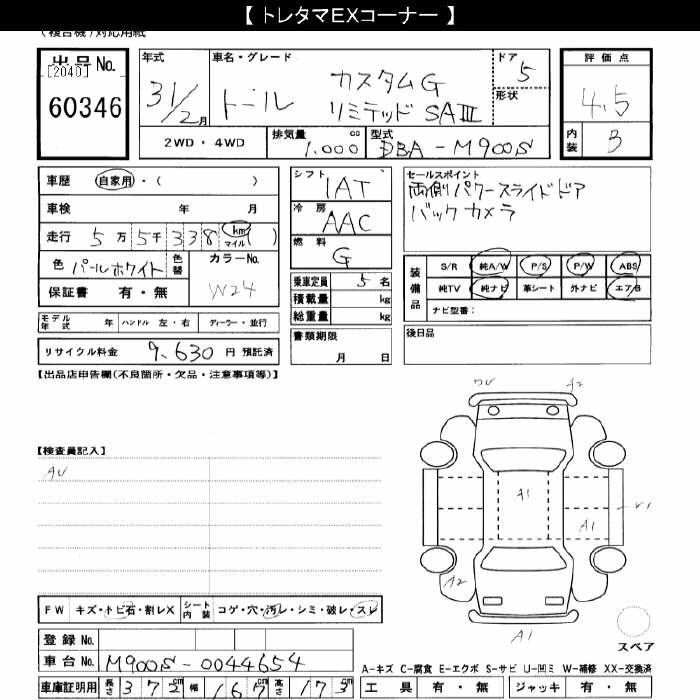 【 トレタマEXコーナー 】
(複合機)対応用紙
出品No.
[2040]
60346
年式
31/2月
車名・グレード
トール
カスタムG
リミテッド SAⅢ
ドア
5
形状
評価点
4.5
内装
B
2WD・4WD
排気量
1.000 cc
型式
DBA-M900S
車歴 自家用・( )
車検 年 月
走行 5万5千338 km マイル ( )
色 パールホワイト 色替
カラーNo.
W24
保証書 有・無
モデル年式 年 ハンドル 左・右 ディーラー・並行
リサイクル料金 9,630 円 預託済
シフト
IAT
冷房
AAC
燃料
G
乗車定員 5名
積載量 kg
総重量 kg
書類期限
月 日
セールスポイント
両側パワースライドドア
バックカメラ
装備品
S/R 純A/W P/S P/W ABS
純TV 純ナビ 革シート 外ナビ エアB
ナビ型番:
後日品
【出品店申告欄(不良箇所・欠品・注意事項等)】
【検査員記入】
AU
A2
A1
A1
A2
A1
スペア
FW キズ・トビ石・割レX シート内装 コゲ・穴・汚レ・シミ・破レ・スレ
登録No.
車台No. M900S-0044654
車庫証明用 長さ 372cm 幅 167cm 高さ 173cm
A-キズ C-腐食 E-エクボ S-サビ U-凹ミ W-補修 XX-交換済
工具 有・無 ジャッキ 有・無